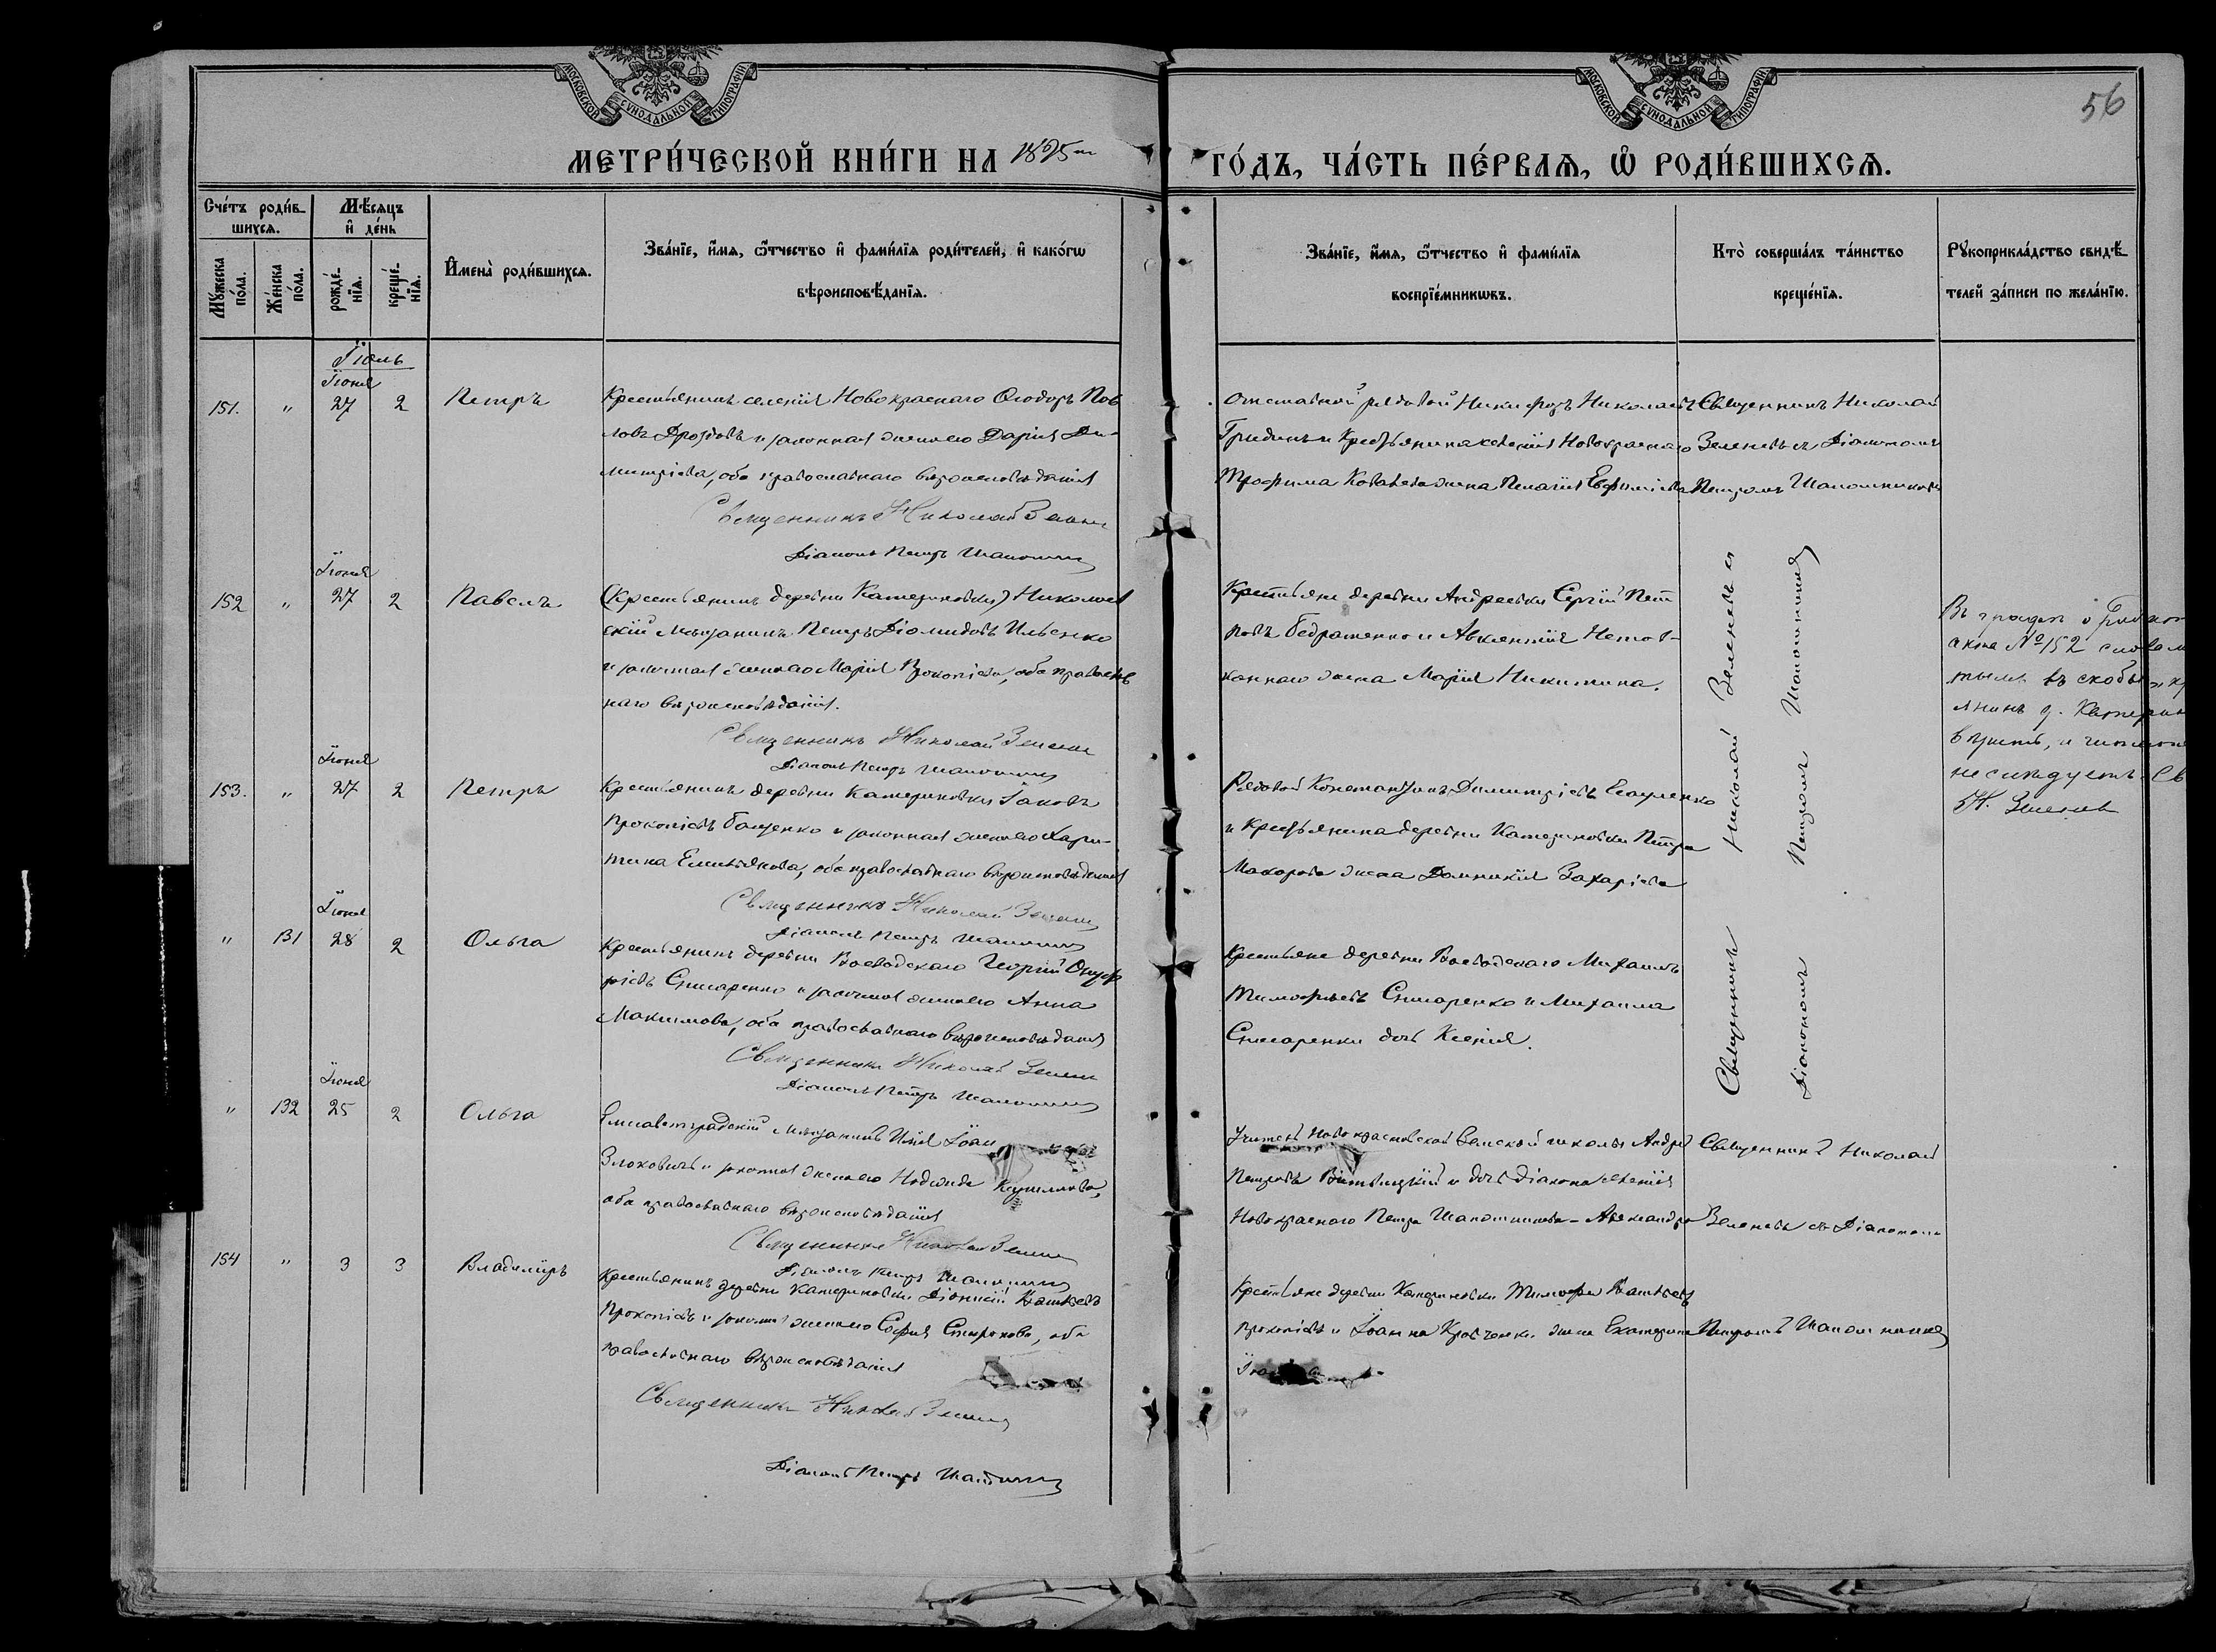 МОСКОВСКОЙ СУНОДАЛЬНОЙ ТИПОГРАФІИ
МОСКОВСКОЙ СУНОДАЛЬНОЙ ТИПОГРАФІИ
56
МЕТРИ́ЧЕСКОЙ КНИ́ГИ НА 1895 ГО́ДЪ, ЧА́СТЬ ПЕ́РВАЯ, Ѡ РОДИ́ВШИХСЯ.
Сче́тъ роди́в-
шихся.
Мꙋжеска по́ла.
Же́нска по́ла.
Мѣсяцъ и҆ де́нь
рожде́-
нїя.
креще́-
нїя.
И҆мена̀ роди́вшихся.
Зва́нїе, и҆́мя, ѻ҆́тчество и҆ фами́лїя роди́телей, и҆ како́гѡ
вѣроисповѣ́данїя.
Зва́нїе, и҆́мя, ѻ҆́тчество и҆ фами́лїя
воспрїе́мникѡвъ.
Кто̀ соверша́лъ та́инство
креще́нїя.
Рꙋкоприкла́дство свидѣ́-
телей за́писи по жела́нїю.
Іюль
Іюня
151. " 27 2 Петръ
Крестьянинъ селенія Новокраснаго Ѳеодоръ Пав
ловъ Дроздовъ и законная жена его Дарія Ди-
митріева, оба православнаго вѣроисповѣданія
Священникъ Николай Зелен
Діаконъ Петръ Шапошник
отставной рядовой Никифоръ Николаевъ
Гридинъ и Крестьянина селенія Новокраснаго
Трофима жена Пелагія Евфиміева
Священникъ Николай
Зеленевъ съ Діакономъ
Петромъ Шапошниковымъ
Іюня
152 " 27 2 Павелъ
(Крестьянинъ деревни Катериновки) Николаев
скій мѣщанинъ Петръ Діомидовъ Ильенко
и законная жена его Марія Прокопіева, оба православ
наго вѣроисповѣданія.
Священникъ Николай Зелен
Діаконъ Петръ Шапошник
Крестьяне деревни Андреевки Сергій Пет
ровъ Бедратенко и Авксентія
жена Марія Никитина.
Священникъ Николай Зеленевъ съ
Діакономъ Петромъ Шапошник
Въ графѣ о
актѣ № 152 слова
тыя въ скобы „кр
янинъ д. Катерин
и читать
не слѣдуетъ. Св
Н. Зеленев
Іюня
153. " 27 2 Петръ
Крестьянинъ деревни Катериновки Іаковъ
Прокопіевъ Бащенко и законная жена его Хари-
тина Емиліанова, оба православнаго вѣроисповѣданія
Священникъ Николай Зелен
Діаконъ Петръ Шапошник
Рядовой Константинъ Димитріевъ Есауленко
и Крестьянина деревни Катериновки Петра
Макарова жена Домникія Захаріева
Іюня
" 131 28 2 Ольга
Крестьянинъ деревни Воеводскаго Георгій Онуф
ріевъ Слюсаренко и законная жена его Анна
Максимова, оба православнаго вѣроисповѣданія
Священникъ Николай Зелен
Діаконъ Петръ Шапошник
Крестьяне деревни Воеводскаго Михаилъ
Тимофѣевъ Слюсаренко и Михаила
Слюсаренки дочь Ксенія.
Іюня
" 132 25 2 Ольга
Елисаветградскій мѣщанинъ Илія Іоан
Злоковичъ и законная жена его Надежда
оба православнаго вѣроисповѣданія
Священникъ Николай Зелен
Діаконъ Петръ Шапошник
Учитель Новокрасновской Земской школы Андрей
Петровъ и дочь Діакона селенія
Новокраснаго Петра Шапошникова – Александра
Священникъ Николай
Зеленевъ съ Діакономъ
154 " 3 3 Владиміръ
Крестьянинъ деревни Катериновки Діонисій
Прокопіевъ и законная жена его Софія Спиридонова, оба
православнаго вѣроисповѣданія
Священникъ Николай Зелен
Діаконъ Петръ Шапошник
Крестьяне деревни Катериновки Тимофей
Прокопіевъ и Іоанна Кравченка жена Екатерина
Петромъ Шапошников